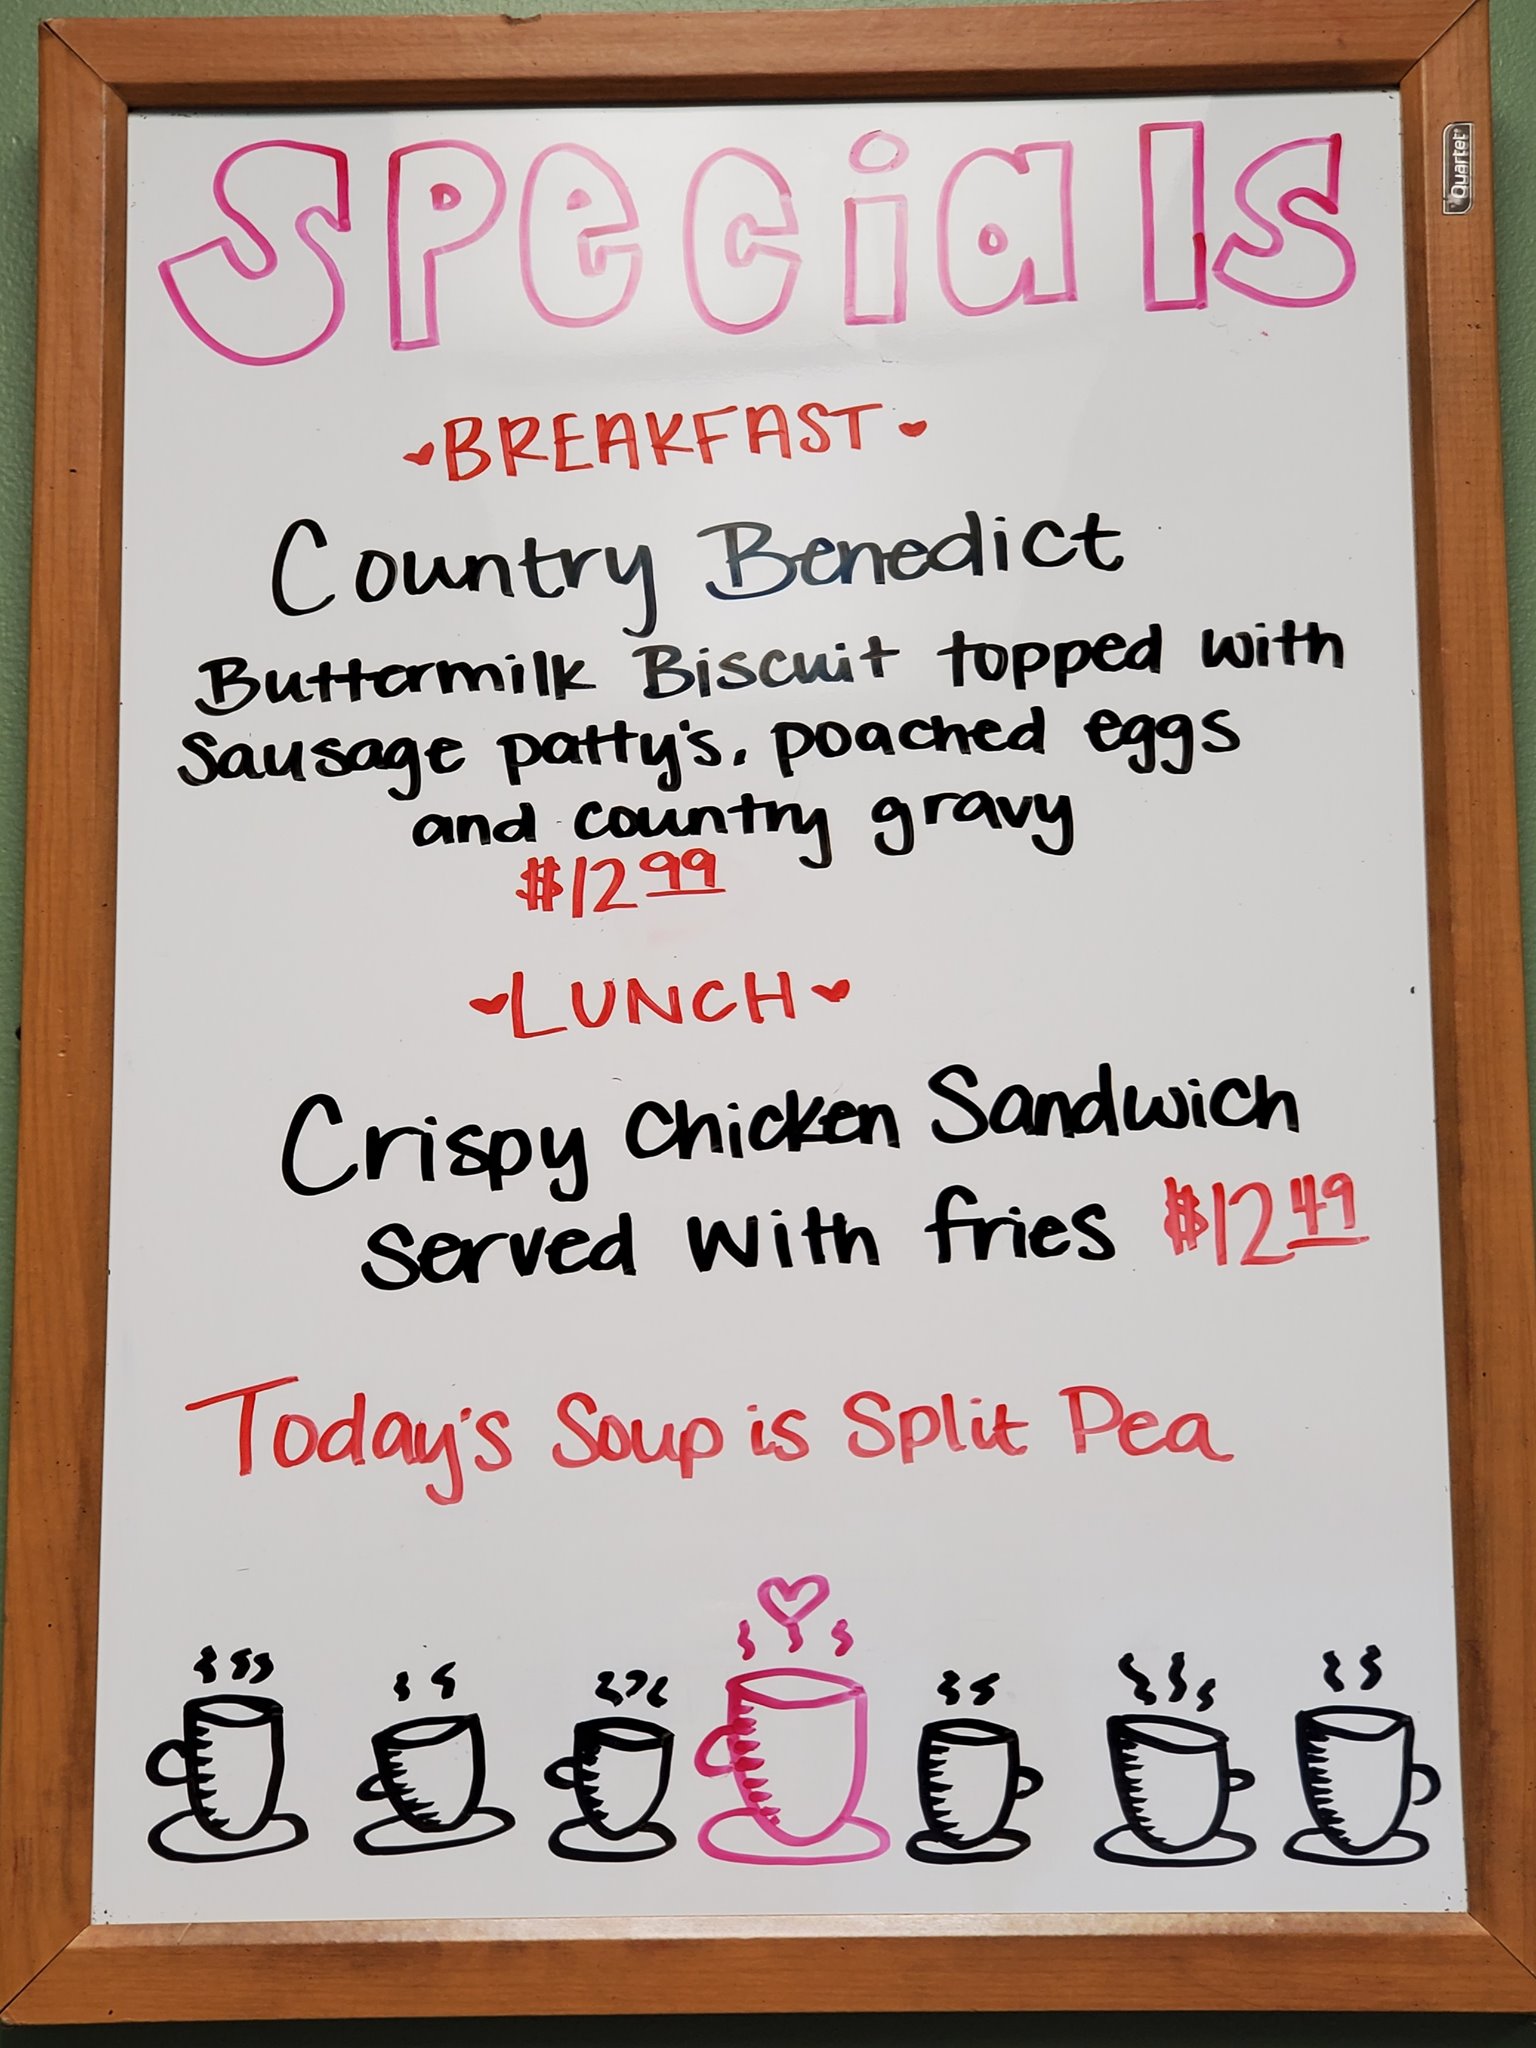 Specials
BREAKFAST
Country Benedict
Buttermilk Biscuit topped with
Sausage patty's, poached eggs
and country gravy
$12.99
LUNCH
Crispy Chicken Sandwich
served with fries $12.49
Today's Soup is Split Pea
Quartet